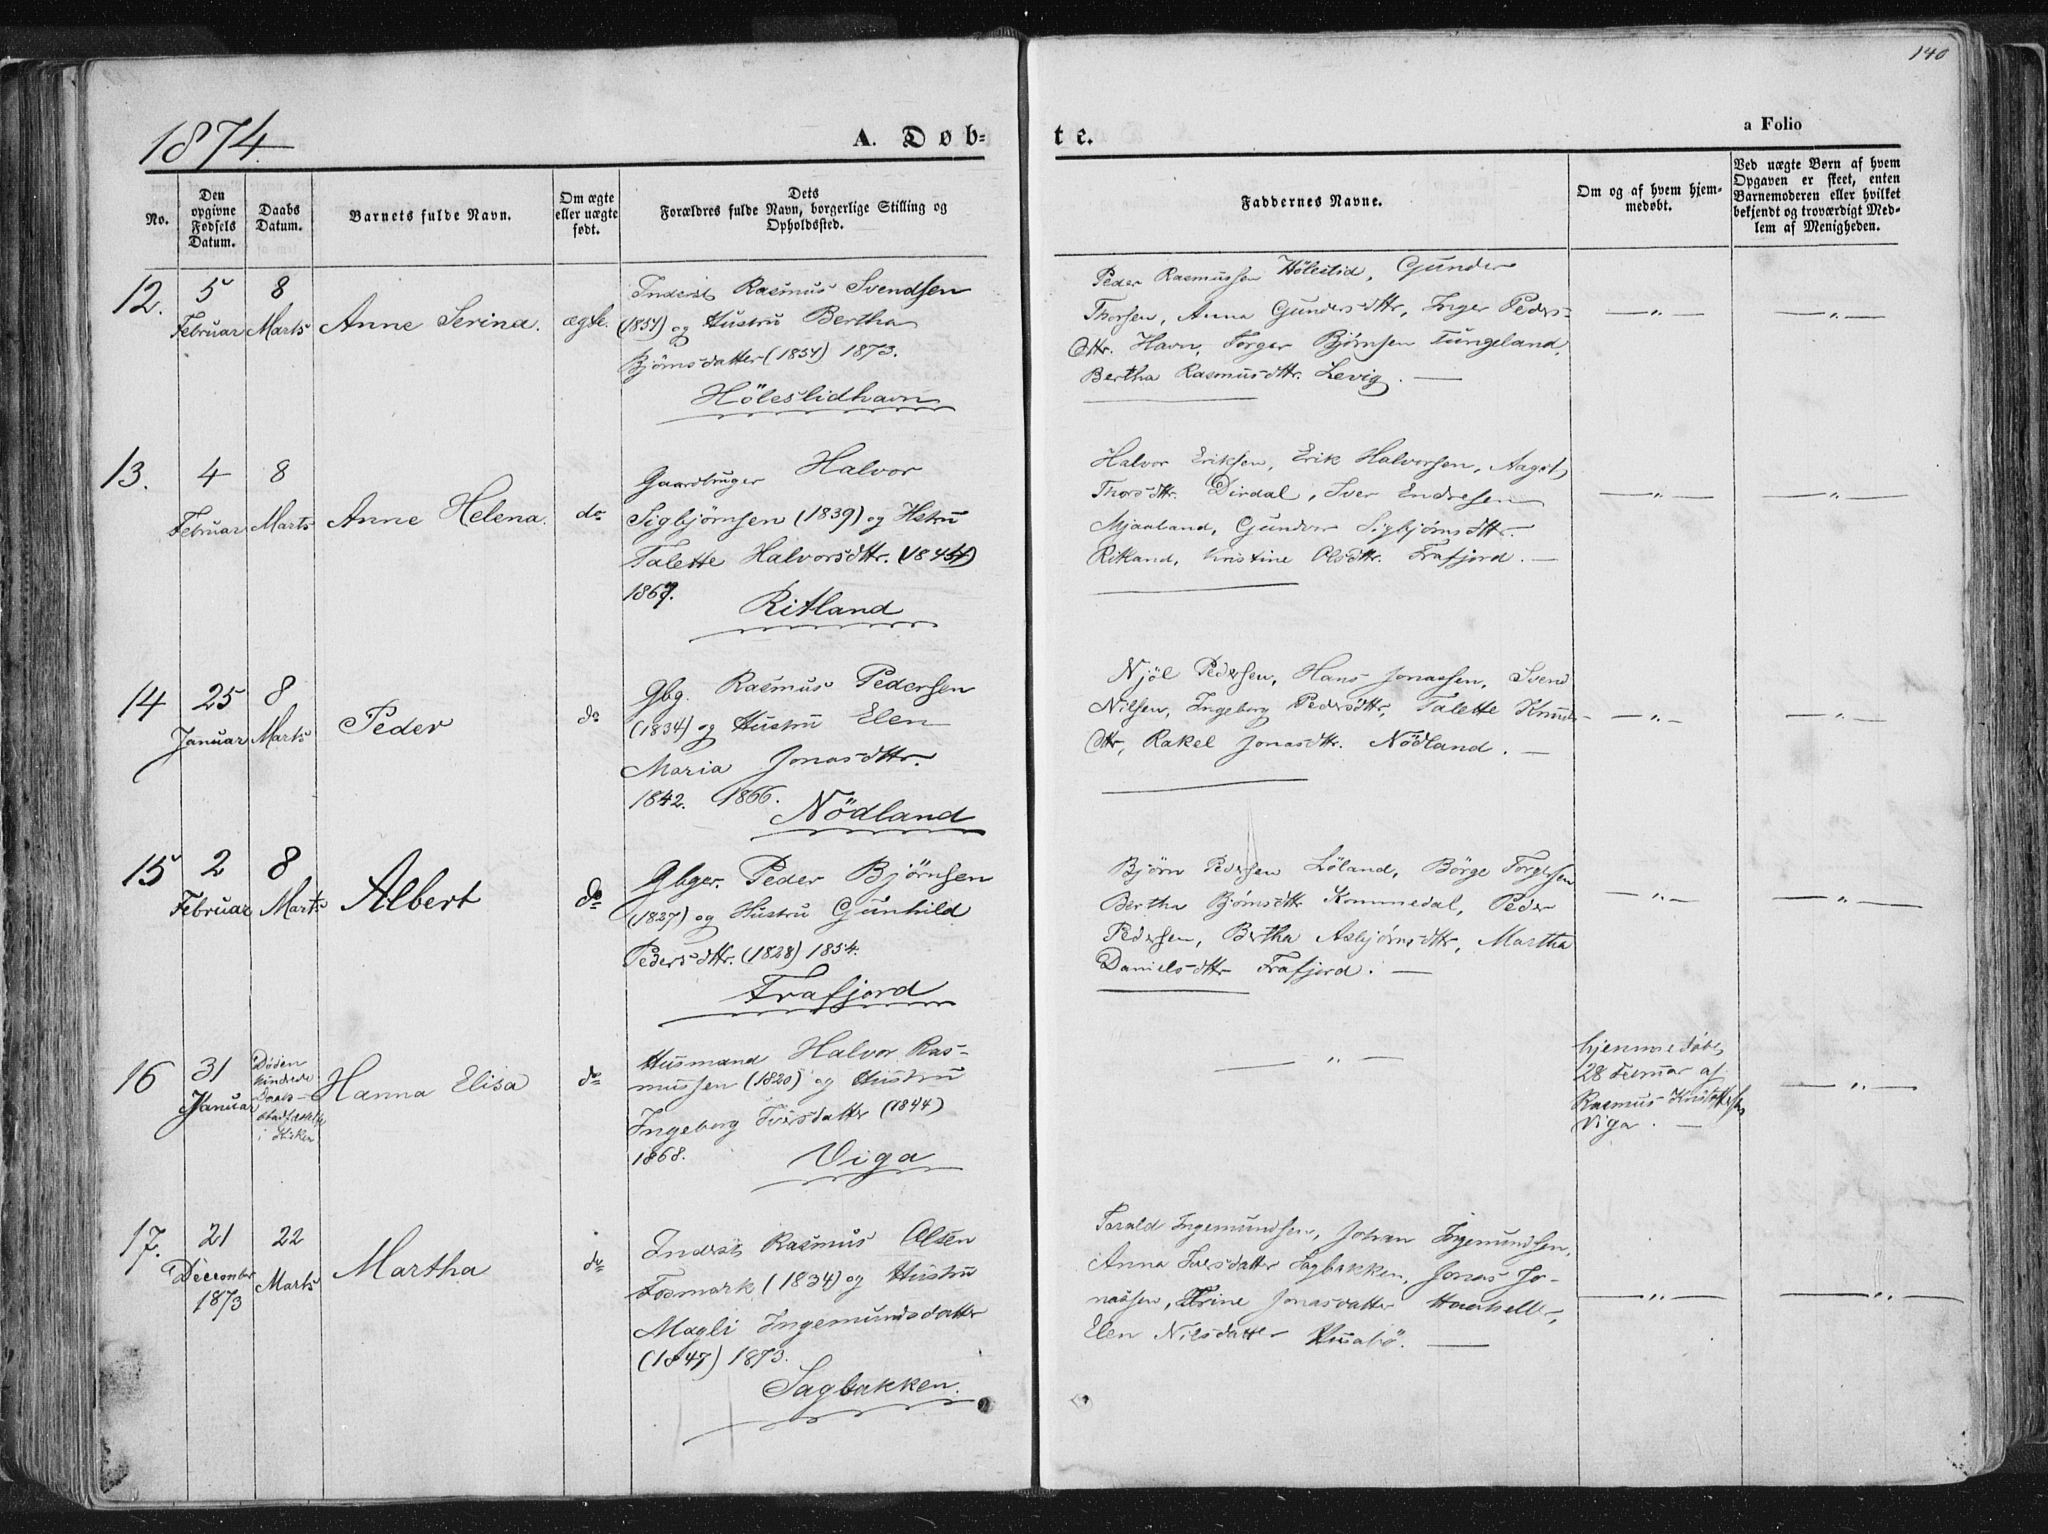 140
1874.
A. Døb-
te.
a Folio
No.
Den opgivne Fødsels Datum.
Daabs Datum.
Barnets fulde Navn.
Om ægte eller uægte født.
Dets Forældres fulde Navn, borgerlige Stilling og Opholdssted.
Faddernes Navne.
Om og af hvem hjemmedøbt.
Ved uægte Børn af hvem Opgaven er skeet, enten Barnemoderen eller hvilket bekjendt og troværdigt Medlem af Menigheden.
12.
5 Februar
8 Marts
Anne Serina.
ægte.
Inderst Rasmus Svendsen
(1851) og Hustru Bertha
Bjørnsdatter (1854) 1873.
Höleslidhavn
Peder Rasmussen Höleslid, Gunder
Thorsen, Anna Gundersdttr, Inger Peders-
dttr. Havn, Torger Bjørnsen Tungeland,
Bertha Rasmusdttr. Levig. —
— „ —
— „ —
13.
4 Februar
8 Marts
Anne Helena.
do
Gaardbruger Halvor
Sigbjørnsen (1839) og Hstru
Talette Halvorsdttr.
1867.
Ritland
Halvor Eriksen, Erik Halvorsen, Aagot
Thorsdttr. Dirdal, Iver Endresen
Mjaaland, Gundvor Sigbjørnsdttr.
Ritland, Kristine Olsdttr. Frafjord. —
— „ —
— „ —
14
25 Januar
8 Marts
Peder
do
Gbg. Rasmus Pedersen
(1834) og Hustru Elen
Maria Jonasdttr.
1842. 1866.
Nödland
Njöl Pedersen, Hans Jonassen, Svend
Nilsen, Ingeborg Pedersdttr, Talette Knuds-
dttr, Rakel Jonasdttr. Nödland. —
— „ —
— „ —
15
2 Februar
8 Marts
Albert
do
Gbger. Peder Bjørnsen
(1827) og Hustru Gunhild
Pedersdttr. (1828) 1854.
Frafjord
Bjørn Pedersen Löland, Börge Torgersen
Bertha Bjørnsdttr Kommedal, Peder
Pedersen, Bertha Asbjørnsdttr, Martha
Danielsdttr Frafjord. —
— „ —
— „ —
16
31 Januar
Døden
hindrede
Daabs-
i Kirken
Hanna Elisa
do
Husmand Halvor Ras-
mussen (1820) og Hustru
Ingeborg Iversdatter (1844)
1868.
Viga
— „ —
hjemmedøbt
28 Februar af
Rasmus
Viga. —
— „ —
17.
21 December 1873
22 Marts
Martha
do
Inderst Rasmus Olsen
Fosmark (1834) og Hustru
Magli Ingemundsdatter
(1847) 1873.
Sagbakken.
Tarald Ingemundsen, Johan Ingemundsen,
Anna Iversdatter Sagbakken, Jonas Jo-
nassen, Trine Jonasdatter
Elen Nilsdatter —
— „ —
— „ —